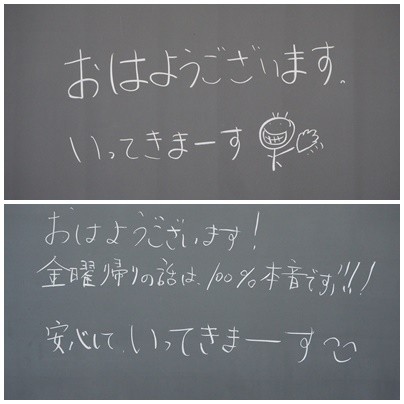 おはようございます。
いってきまーす
おはようございます！
金曜帰りの話は、100%本音です!!!!
安心して、いってきまーす